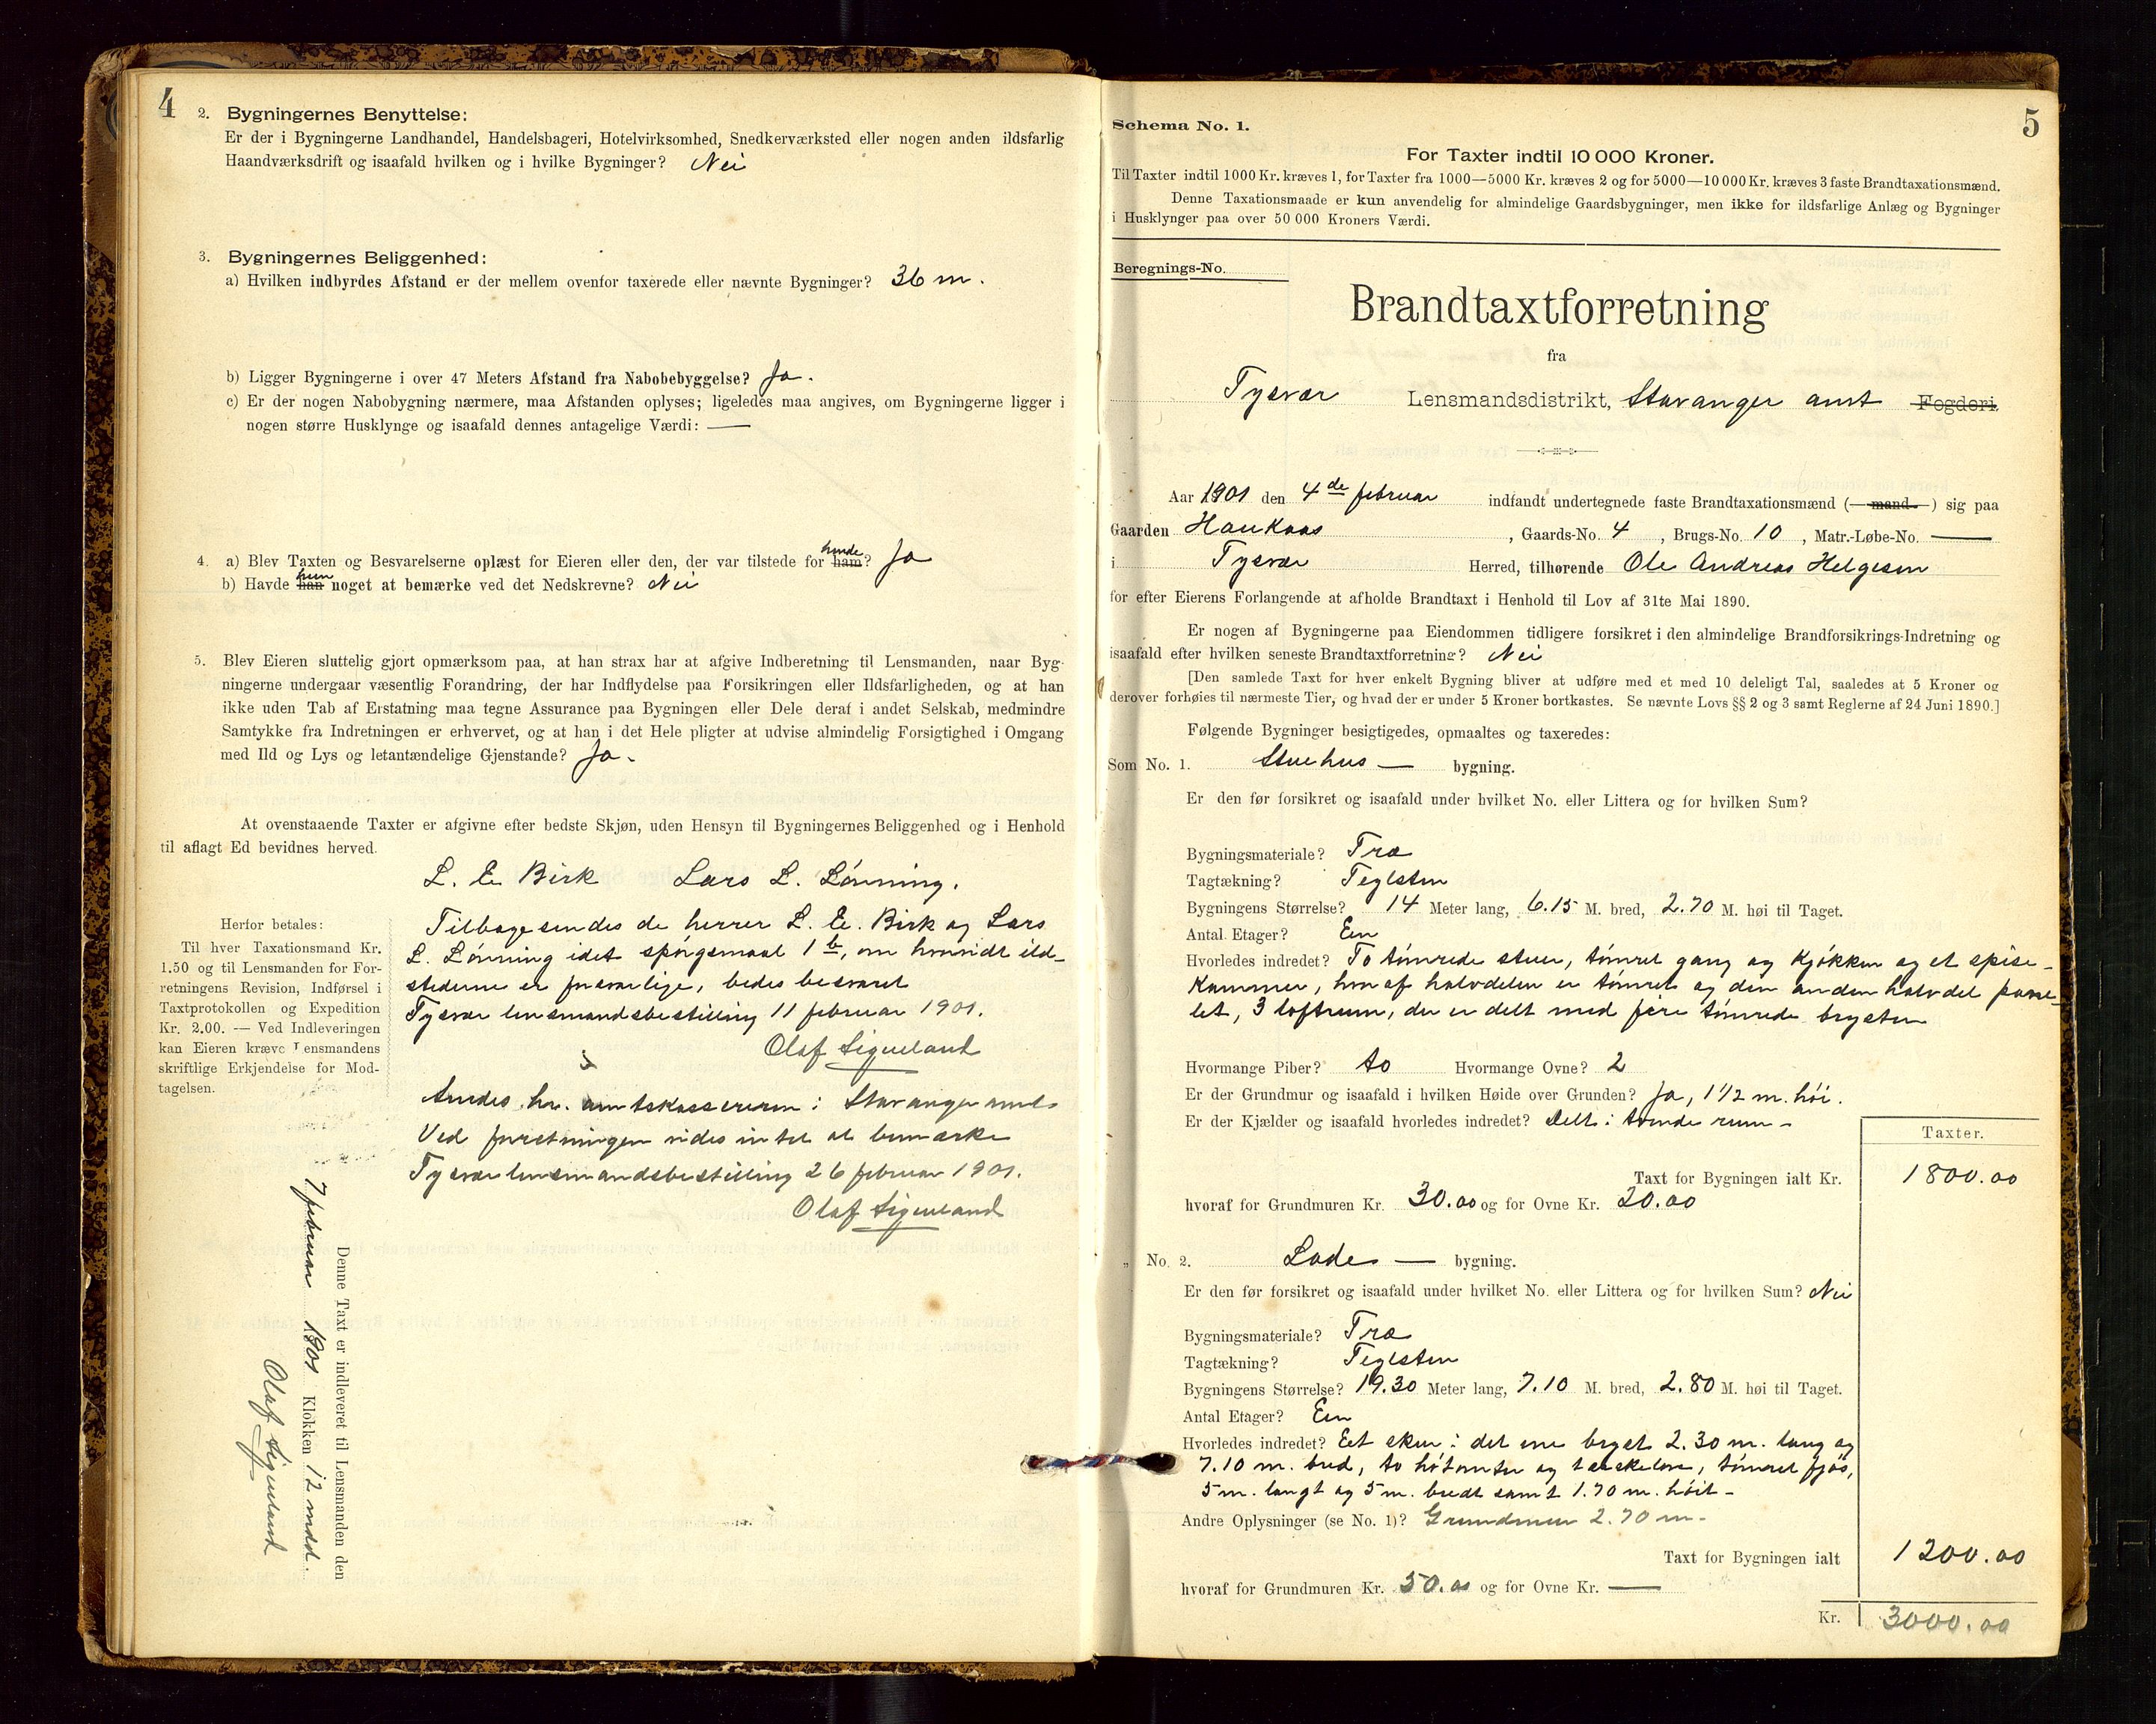 4
2. Bygningernes Benyttelse:
Er der i Bygningerne Landhandel, Handelsbageri, Hotelvirksomhed, Snedkerværksted eller nogen anden ildsfarlig
Haandværksdrift og isaafald hvilken og i hvilke Bygninger? Nei
3. Bygningernes Beliggenhed:
a) Hvilken indbyrdes Afstand er der mellem ovenfor taxerede eller nævnte Bygninger? 36 m.
b) Ligger Bygningerne i over 47 Meters Afstand fra Nabobebyggelse? Ja.
c) Er der nogen Nabobygning nærmere, maa Afstanden oplyses; ligeledes maa angives, om Bygningerne ligger i
nogen større Husklynge og isaafald dennes antagelige Værdi: —
4. a) Blev Taxten og Besvarelserne oplæst for Eieren eller den, der var tilstede for ham hende? Ja
b) Havde han hun noget at bemærke ved det Nedskrevne? Nei
5. Blev Eieren sluttelig gjort opmærksom paa, at han strax har at afgive Indberetning til Lensmanden, naar Byg-
ningerne undergaar væsentlig Forandring, der har Indflydelse paa Forsikringen eller Ildsfarligheden, og at han
ikke uden Tab af Erstatning maa tegne Assurance paa Bygningen eller Dele deraf i andet Selskab, medmindre
Samtykke fra Indretningen er erhvervet, og at han i det Hele pligter at udvise almindelig Forsigtighed i Omgang
med Ild og Lys og letantændelige Gjenstande? Ja.
At ovenstaaende Taxter er afgivne efter bedste Skjøn, uden Hensyn til Bygningernes Beliggenhed og i Henhold
til aflagt Ed bevidnes herved.
L. E. Birk Lars L. Lönning.
Herfor betales:
Til hver Taxationsmand Kr.
1.50 og til Lensmanden for For-
retningens Revision, Indførsel i
Taxtprotokollen og Expedition
Kr. 2.00. — Ved Indleveringen
kan Eieren kræve Lensmandens
skriftlige Erkjendelse for Mod-
tagelsen.
Tilbagesendes de herrer L. E. Birk og Lars
L. Lönning idet spörgsmaal 1 b, om hvorvidt ild-
stederne er forsvarlige, bedes besvaret
Tysvær lensmandsbestilling 11 februar 1901.
Olaf Sigveland
Sendes hr. amtskassereren i Stavanger amt.
Ved forretningen vides intet at bemærke
Tysvær lensmandsbestilling 26 februar 1901.
Olaf Sigveland
Denne Taxt er indleveret til Lensmanden den
7 februar 1901 Klokken 12 midd.
Olaf Sigveland
5
Schema No. 1.
For Taxter indtil 10 000 Kroner.
Til Taxter indtil 1000 Kr. kræves 1, for Taxter fra 1000—5000 Kr. kræves 2 og for 5000—10 000 Kr. kræves 3 faste Brandtaxationsmænd.
Denne Taxationsmaade er kun anvendelig for almindelige Gaardsbygninger, men ikke for ildsfarlige Anlæg og Bygninger
i Husklynger paa over 50 000 Kroners Værdi.
Beregnings-No.
Brandtaxtforretning
fra
Tysvær Lensmandsdistrikt, Stavanger amt Fogderi.
Aar 1901 den 4de februar indfandt undertegnede faste Brandtaxationsmænd (—mand—) sig paa
Gaarden Haukaas, Gaards-No. 4, Brugs-No. 10, Matr.-Løbe-No. —
i Tysvær Herred, tilhørende Ole Andreas Helgesen
for efter Eierens Forlangende at afholde Brandtaxt i Henhold til Lov af 31te Mai 1890.
Er nogen af Bygningerne paa Eiendommen tidligere forsikret i den almindelige Brandforsikrings-Indretning og
isaafald efter hvilken seneste Brandtaxtforretning? Nei
[Den samlede Taxt for hver enkelt Bygning bliver at udføre med et med 10 deleligt Tal, saaledes at 5 Kroner og
derover forhøies til nærmeste Tier, og hvad der er under 5 Kroner bortkastes. Se nævnte Lovs §§ 2 og 3 samt Reglerne af 24 Juni 1890.]
Følgende Bygninger besigtigedes, opmaaltes og taxeredes:
Som No. 1. Stuehus — bygning.
Er den før forsikret og isaafald under hvilket No. eller Littera og for hvilken Sum?
Bygningsmateriale? Træ
Tagtækning? Teglsten
Bygningens Størrelse? 14 Meter lang, 6.15 M. bred, 2.70 M. høi til Taget.
Antal Etager? Een
Hvorledes indredet? To tömrede stuer, tömret gang og kjökken og et spise-
kammer, hvoraf halvdelen er tömret og den anden halvdel pane-
let, 3 loftrum, der er delt med fire tömrede bryster
Hvormange Piber? to Hvormange Ovne? 2
Er der Grundmur og isaafald i hvilken Høide over Grunden? Ja, 1 1/2 m. höi.
Er der Kjælder og isaafald hvorledes indredet? Delt i tvende rum -
Taxter.
Taxt for Bygningen ialt Kr. 1800.00
hvoraf for Grundmuren Kr. 30.00 og for Ovne Kr. 20.00
„ No. 2. Lades — bygning.
Er den før forsikret og isaafald under hvilket No. eller Littera og for hvilken Sum? Nei
Bygningsmateriale? Træ
Tagtækning? Teglsten
Bygningens Størrelse? 19.30 Meter lang, 7.10 M. bred, 2.80 M. høi til Taget.
Antal Etager? Een
Hvorledes indredet? Eet skur i det ene bryst 2.30 m. lang og
7.10 m. bred, to hötomter og tærskelove, tömret fjøs,
5 m. langt og 5 m. bredt samt 1.70 m. höit -
Andre Oplysninger (se No. 1)? Grundmur 2.70 m.
Taxt for Bygningen ialt 1200.00
hvoraf for Grundmuren Kr. 50.00 og for Ovne Kr. —
Kr. 3000.00